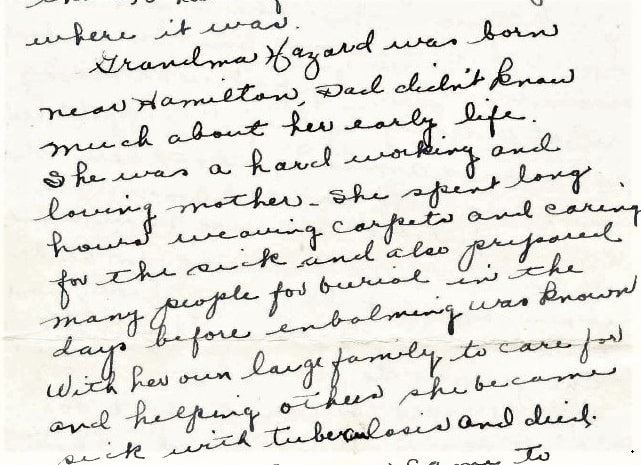 where it was.
Grandma Hazard was born
near Hamilton, Dad didn't know
much about her early life.
She was a hard working and
loving mother - She spent long
hours weaving carpets and caring
for the sick and also prepared
many people for burial in the
days before enbalming was known
With her own large family to care for
and helping others she became
sick with tuberculosis and died.
came to